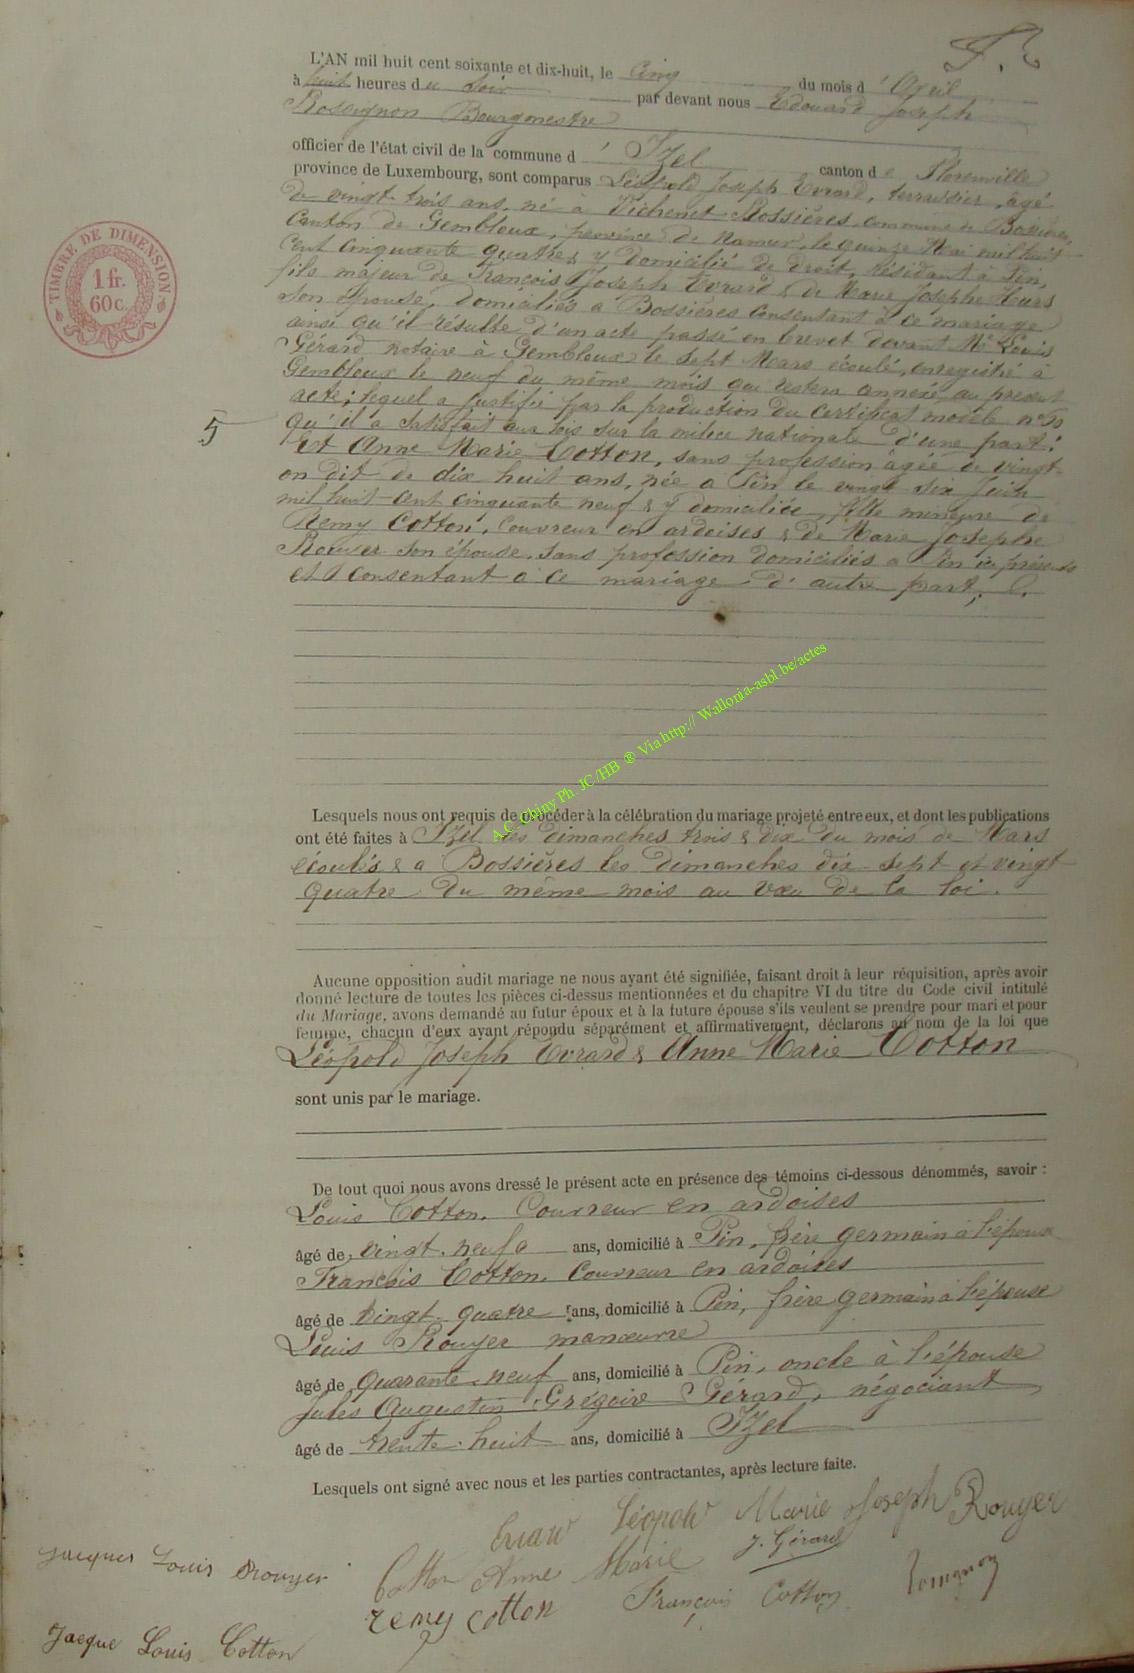 L'AN mil huit cent soixante et dix-huit, le cinq du mois d'Avril
à huit heures du Soir par devant nous Edouard Joseph
Rossignon Bourgmestre
officier de l'état civil de la commune d'Izel canton de Florenville
province de Luxembourg, sont comparus Léopold Joseph Evrard, terrassier, agé
de vingt trois ans, né à Vichenet-Bossières, commune de Bossières,
Canton de Gembloux, province de Namur, le quinze Mai mil huit
cent cinquante quatre, & y domicilié de droit, résidant à Pin,
fils majeur de François Joseph Evrard & de Marie Josephe
son épouse, domiciliés à Bossières consentant à ce mariage
ainsi qu'il résulte d'un acte passé en brevet devant Me Louis
Gérard notaire à Gembloux le sept Mars écoulé, enregistré à
Gembloux le neuf du même mois qui restera annexé au présent
acte; lequel a justifié par la production du certificat modèle no
5
qu'il a satisfait aux lois sur la milice nationale d'une part.
Et Anne Marie Cotton, sans profession âgée de vingt
on dit de dix huit ans, née à Pin le vingt six Juin
mil huit cent cinquante neuf & y domiciliée, fille mineure de
Remy Cotton, Couvreur en ardoises & de Marie Josephe
Rouyer son épouse, sans profession domiciliés à Pin ici présents
et consentant à ce mariage d'autre part.
TIMBRE DE DIMENSION
1 fr.
60c.
A.C. Chiny Ph. JC/HB ® Via http:// Wallonia-asbl.be/actes
Lesquels nous ont requis de procéder à la célébration du mariage projeté entre eux, et dont les publications
ont été faites à Izel les dimanches trois & dix du mois de Mars
écoulés & à Bossières les dimanches dix-sept et vingt
quatre du même mois au vœu de la loi.
Aucune opposition audit mariage ne nous ayant été signifiée, faisant droit à leur réquisition, après avoir
donné lecture de toutes les pièces ci-dessus mentionnées et du chapitre VI du titre du Code civil intitulé
du Mariage, avons demandé au futur époux et à la future épouse s'ils veulent se prendre pour mari et pour
femme, chacun d'eux ayant répondu séparément et affirmativement, déclarons au nom de la loi que
Léopold Joseph Evrard & Anne Marie Cotton
sont unis par le mariage.
De tout quoi nous avons dressé le présent acte en présence des témoins ci-dessous dénommés, savoir :
Louis Cotton, Couvreur en ardoises
âgé de vingt-neuf ans, domicilié à Pin, frère germain à l'épouse
François Cotton, couvreur en ardoises
âgé de vingt-quatre ans, domicilié à Pin, frère germain à l'épouse
Louis Rouyer manœuvre
âgé de quarante-neuf ans, domicilié à Pin, oncle à l'épouse
Jules Augustin Grégoire Gérard, négociant
âgé de trente-huit ans, domicilié à Izel
Lesquels ont signé avec nous et les parties contractantes, après lecture faite.
Evrard Léopold Marie Joseph Rouyer
Jacques Louis Rouyer Cotton Anne Marie J. Gérard
Remy Cotton François Cotton Rossignon
Jacque Louis Cotton